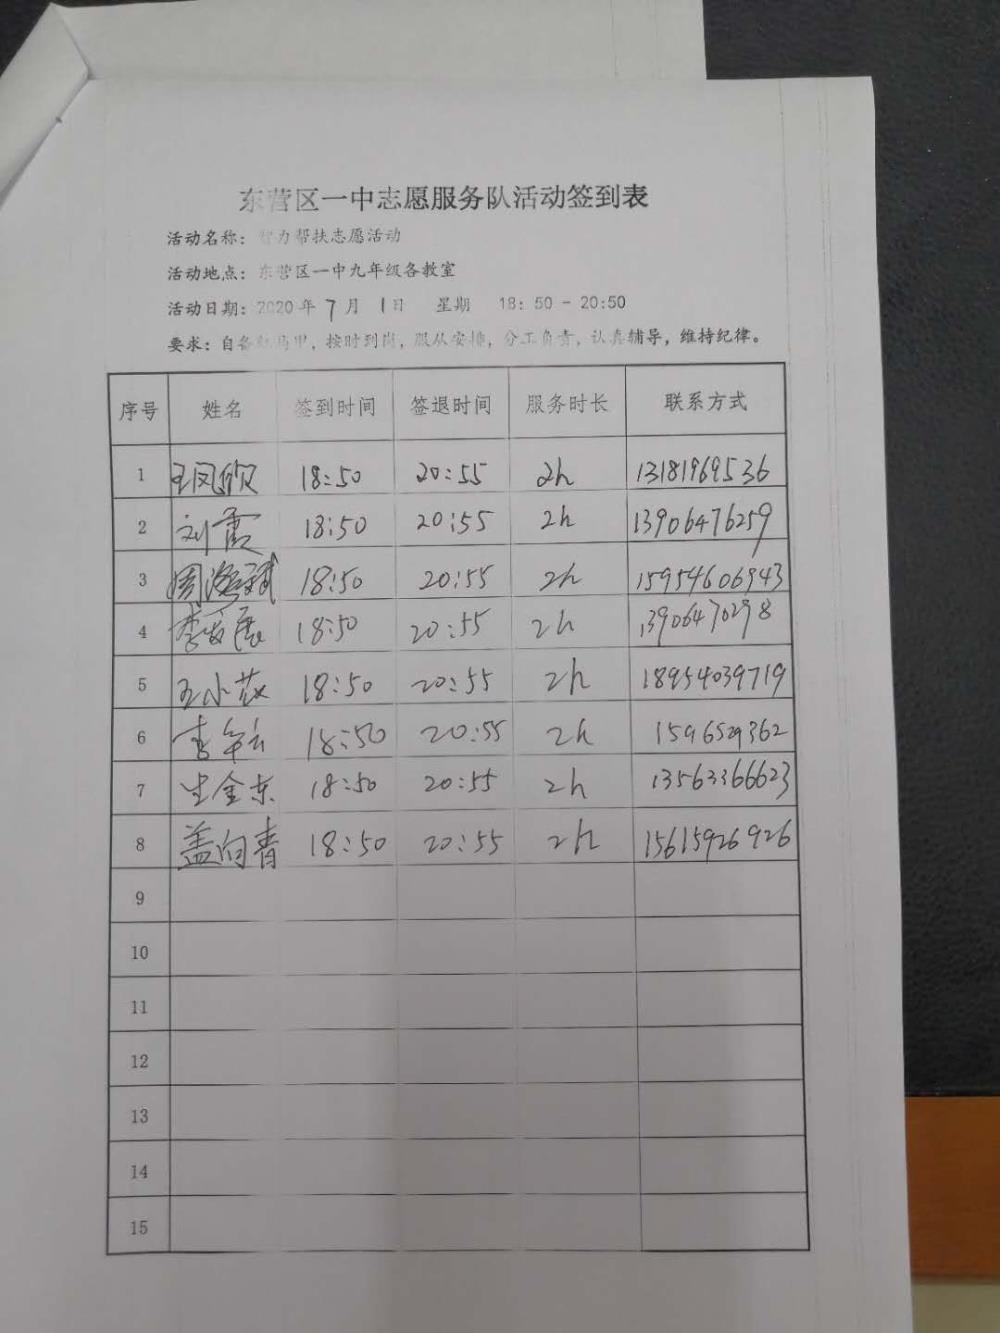 东营区一中志愿服务队活动签到表
活动名称：智力帮扶志愿活动
活动地点：东营区一中九年级各教室
活动日期：2020年7月1日 星期 18：50－20:50
要求：自备红马甲，按时到岗，服从安排，分工负责，认真辅导，维持纪律。
序号 姓名 签到时间 签退时间 服务时长 联系方式
1 王凤欣 18:50 20:55 2h 13181969536
2 刘霞 18:50 20:55 2h 13906476259
3 周 18:50 20:55 2h 15954606943
4 李发展 18:50 20:55 2h 13906470298
5 王小荻 18:50 20:55 2h 18954039719
6 李 18:50 20:55 2h 1596529362
7 生金东 18:50 20:55 2h 13563366623
8 盖向青 18:50 20:55 2h 15615926926
9
10
11
12
13
14
15